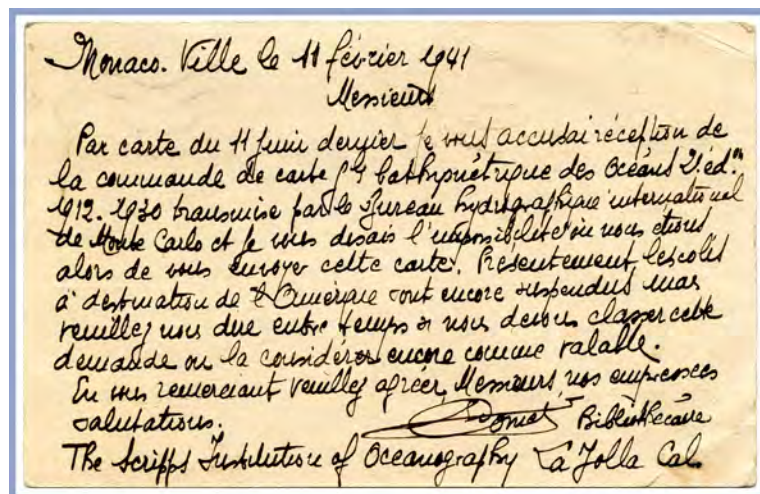 Monaco. Ville le 11 février 1941
Messieurs
Par carte du 11 juin dernier je vous accusai réception de
la commande de carte gle bathymétrique des Océans 2e éd.on
1912. 1930 transmise par le Bureau hydrographique international
de Monte Carlo et je vous disais l'impossibilité où nous étions
alors de vous envoyer cette carte. Présentement les colis
à destination de l'Amérique sont encore suspendus mais
veuillez nous dire entre temps si nous devons classer cette
demande ou la considérer encore comme valable.
En vous remerciant veuillez agréer, Messieurs, nos empressées
salutations.
Bibliothécaire
The Scripps Institution of Oceanography La Jolla Cal.